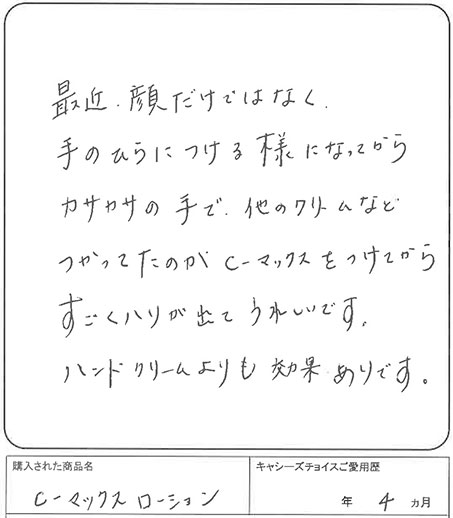 最近、顔だけではなく、
手のひらにつける様になってから
カサカサの手で、他のクリームなど
つかってたのがC-マックスをつけてから
すごくハリが出てうれしいです。
ハンドクリームよりも効果ありです。
購入された商品名
C-マックスローション
キャシーズチョイスご愛用歴
年 4 ヵ月